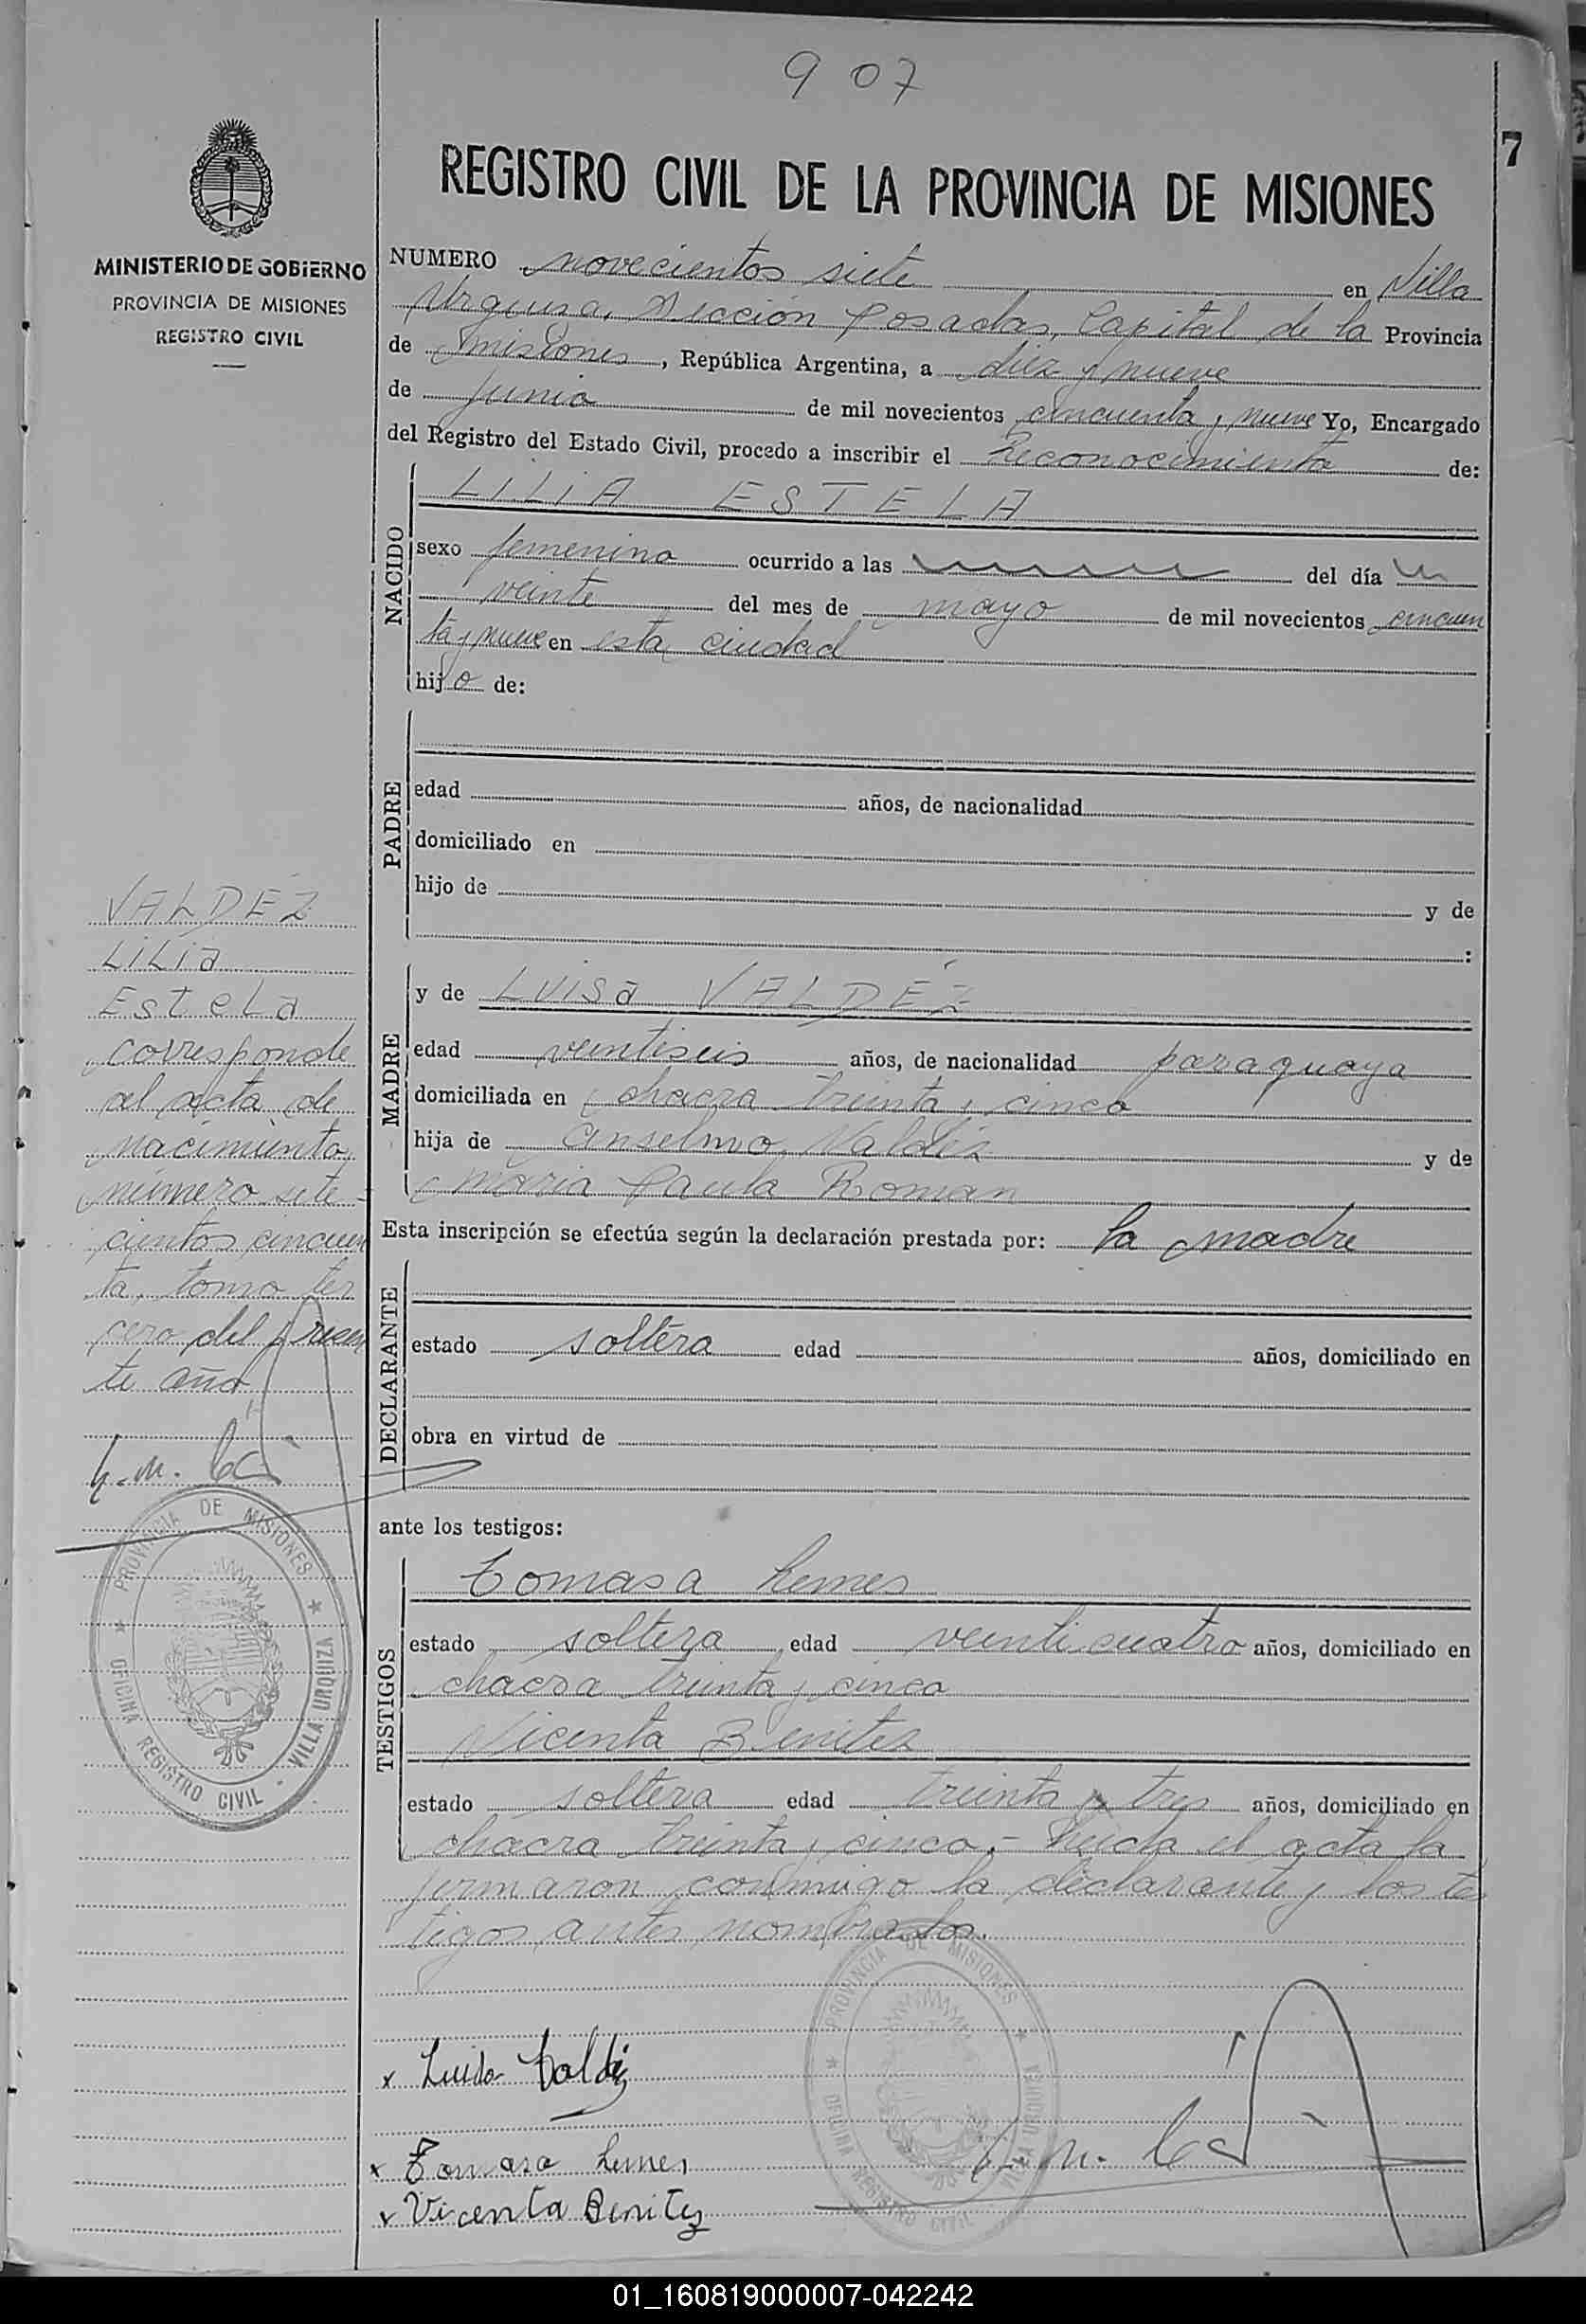 9 07
7
REGISTRO CIVIL DE LA PROVINCIA DE MISIONES
MINISTERIO DE GOBIERNO
PROVINCIA DE MISIONES
REGISTRO CIVIL
NUMERO novecientos siete en Villa
Urquiza, Sección Posadas, Capital de la Provincia
de Misiones, República Argentina, a diez y nueve
de junio de mil novecientos cincuenta y nueve Yo, Encargado
del Registro del Estado Civil, procedo a inscribir el Reconocimiento de:
NACIDO
LILIA ESTELA
sexo femenino ocurrido a las del día
veinte del mes de mayo de mil novecientos cincuen
ta y nueve en esta ciudad
hijo de:
PADRE
edad años, de nacionalidad
domiciliado en
hijo de y de
:
MADRE
y de LUISA VALDÉZ
edad veintiseis años, de nacionalidad paraguaya
domiciliada en chacra treinta y cinco
hija de Anselmo Valdéz y de
Maria Paula Roman
Esta inscripción se efectúa según la declaración prestada por: la madre
DECLARANTE
estado soltera edad años, domiciliado en
obra en virtud de
ante los testigos:
TESTIGOS
Tomasa Lemes
estado soltera edad veinticuatro años, domiciliado en
chacra treinta y cinco
Vicenta Benitez
estado soltera edad treinta y tres años, domiciliado en
chacra treinta y cinco.- Leida el acta la
firmaron conmigo la declarante y los tes
tigos antes nombrados.
x Luisa Valdéz
x Tomasa Lemes
x Vicenta Benitez
VALDÉZ
LILIA
ESTELA
corresponde
al acta de
nacimiento
número sete-
cientos cincuen
ta, tomo ter
cero del presen
te año
PROVINCIA DE MISIONES
OFICINA REGISTRO CIVIL - VILLA URQUIZA
PROVINCIA DE MISIONES
OFICINA REGISTRO CIVIL VILLA URQUIZA
01_160819000007-042242